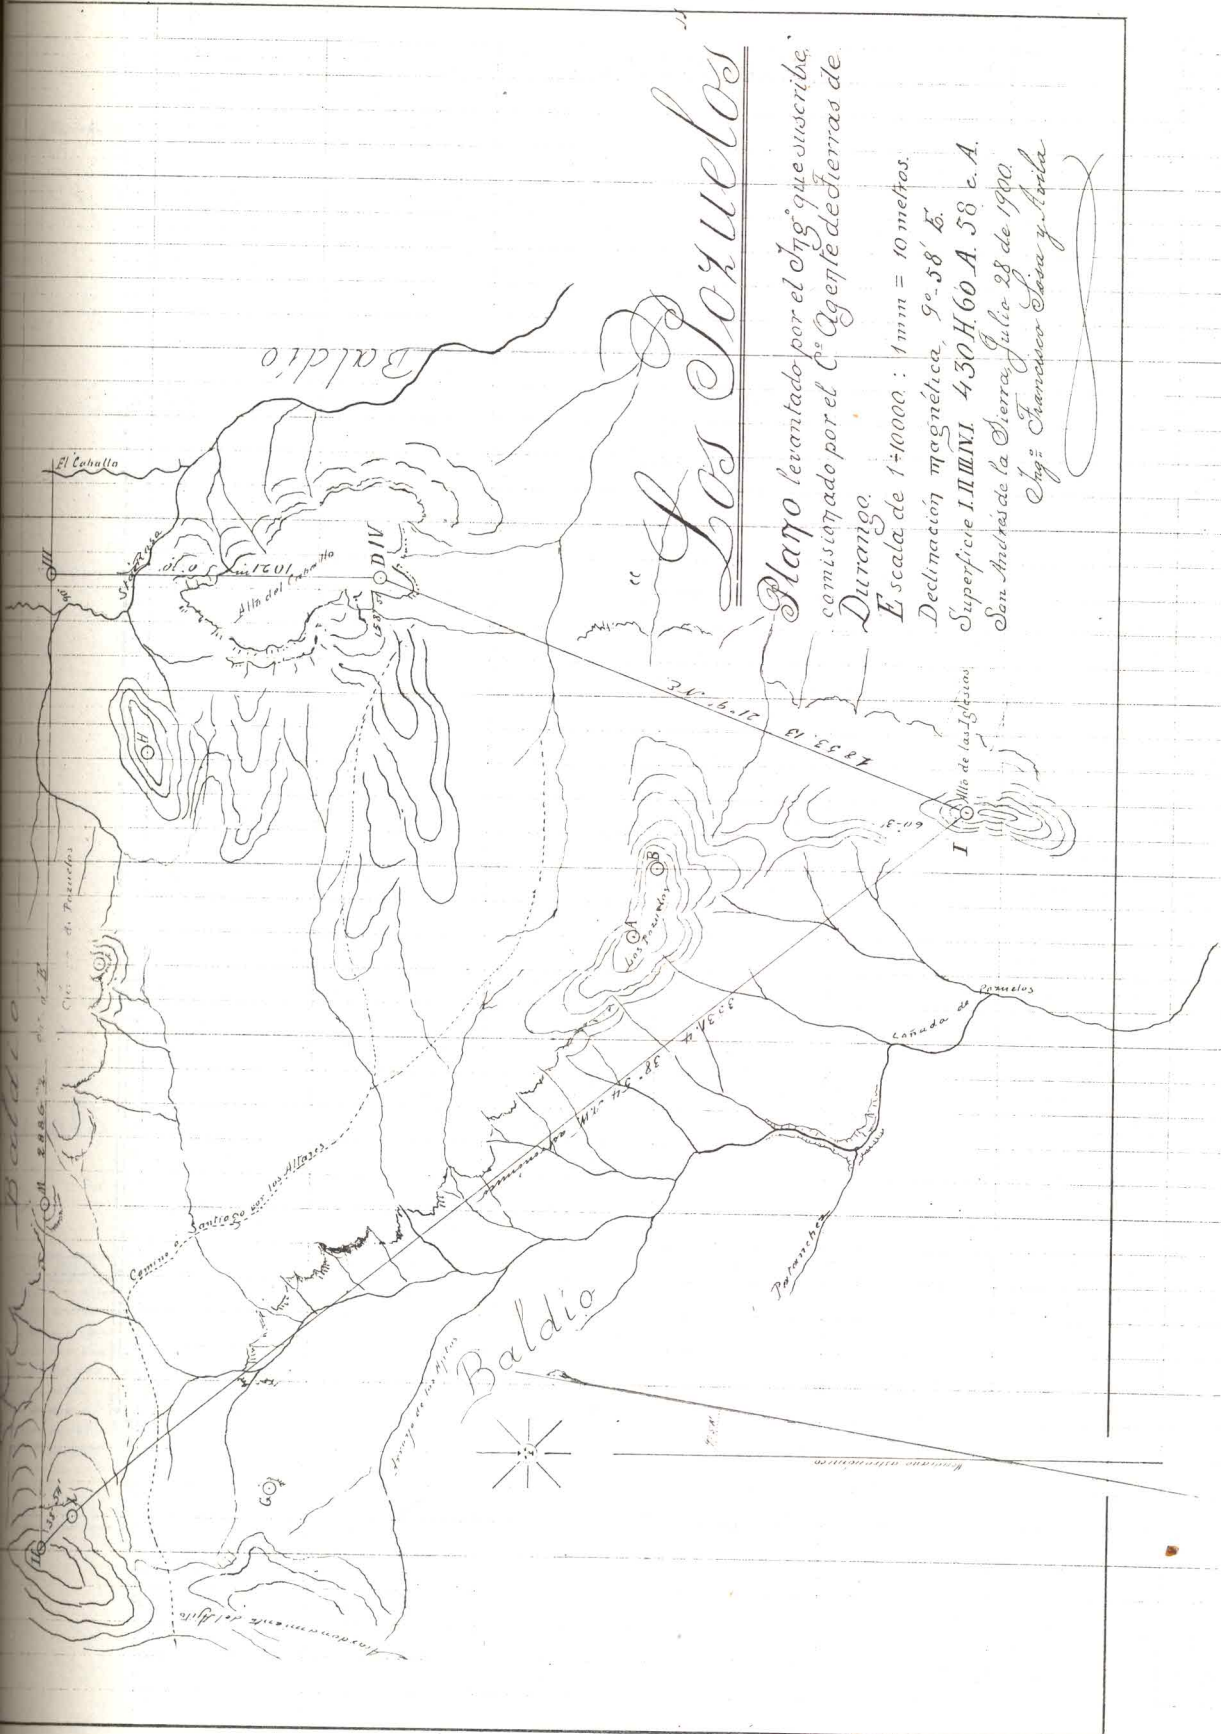 Los Pozuelos
Plano levantado por el Ingº que suscribe,
comisionado por el Cº Agente de Tierras de
Durango.
Escala de 1÷10000 : 1mm = 10 metros.
Declinación magnética, 9º-58' E.
Superficie I.II.III.IV.I. 430 H. 60 A. 58 c. A.
San Andrés de la Sierra, Julio 28 de 1900.
Ingº Francisco Sosa y Avila
Baldío
Baldío
Baldío
El Caballo
III
1021m
S 0º
Alto del Caballo
D IV
H
21º 9' NE
1853.13
I
Alto de las Iglesias
60º-3'
B
A
Los Pozuelos
3331.4
38º 54'
Cañada de Pozuelos
de Pozuelos
M
Camino a Santiago por los Altares
Arroyo de los Ajitos
G
II
Acordonamiento del Ajito
Meridiano astronómico